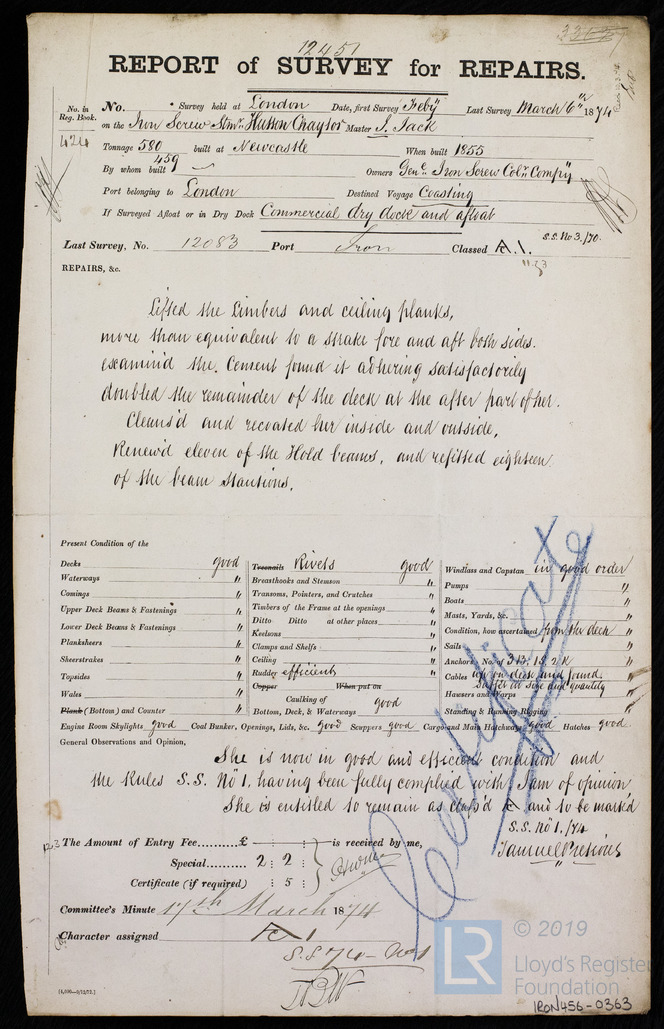 12451
REPORT of SURVEY for REPAIRS.
No. in Reg. Book.
424
No. Survey held at London Date, first Survey Feby Last Survey March 6th 1874
on the Iron Screw Stmr. Hutton Chaytor Master J. Jack
Tonnage 580 built at Newcastle When built 1855
459
By whom built Owners Genl. Iron Screw Colr. Compy
Port belonging to London Destined Voyage Coasting
If Surveyed Afloat or in Dry Dock Commercial dry dock and afloat
Last Survey, No. 12083 Port Iron Classed A.1. S.S. No 3./70.
REPAIRS, &c.
Lifted the Limbers and ceiling planks,
more than equivalent to a strake fore and aft both sides.
examin'd the Cement found it adhering satisfactorily
doubled the remainder of the deck at the after part of her.
Cleans'd and recoated her inside and outside,
Renew'd eleven of the Hold beams, and refitted eighteen
of the beam Stantions.
Present Condition of the
Decks good
Waterways "
Comings "
Upper Deck Beams & Fastenings "
Lower Deck Beams & Fastenings "
Planksheers "
Sheerstrakes "
Topsides "
Wales "
Plank (Bottom) and Counter "
Treenails Rivets good
Breasthooks and Stemson "
Transoms, Pointers, and Crutches "
Timbers of the Frame at the openings "
Ditto Ditto at other places "
Keelsons "
Clamps and Shelfs "
Ceiling "
Rudder efficient "
Copper When put on
Caulking of
Bottom, Deck, & Waterways good
Windlass and Capstan in good order
Pumps "
Boats "
Masts, Yards, &c. "
Condition, how ascertained from the deck
Sails "
Anchors No. of 3 B. 1 S. 2 K "
Cables up on deck and found
Suffct in size and quantity
Hawsers and Warps "
Standing & Running Rigging "
Engine Room Skylights good Coal Bunker, Openings, Lids, &c. good Scuppers good Cargo and Main Hatchways good Hatches good
General Observations and Opinion,
She is now in good and efficient condition and
the Rules S.S. No 1. having been fully complied with I am of opinion
She is entitled to remain as class'd A and to be mark'd
S.S. No 1./74
Samuel Presious
Certificate
The Amount of Entry Fee £ is received by me,
Special 2 : 2 :
Certificate (if required) : 5 :
Committee's Minute 17th March 1874
Character assigned A 1
S.S 74 - No 1
[4,000—9/12/72.]
LR
© 2019
Lloyd's Register
Foundation
IRON456-0363